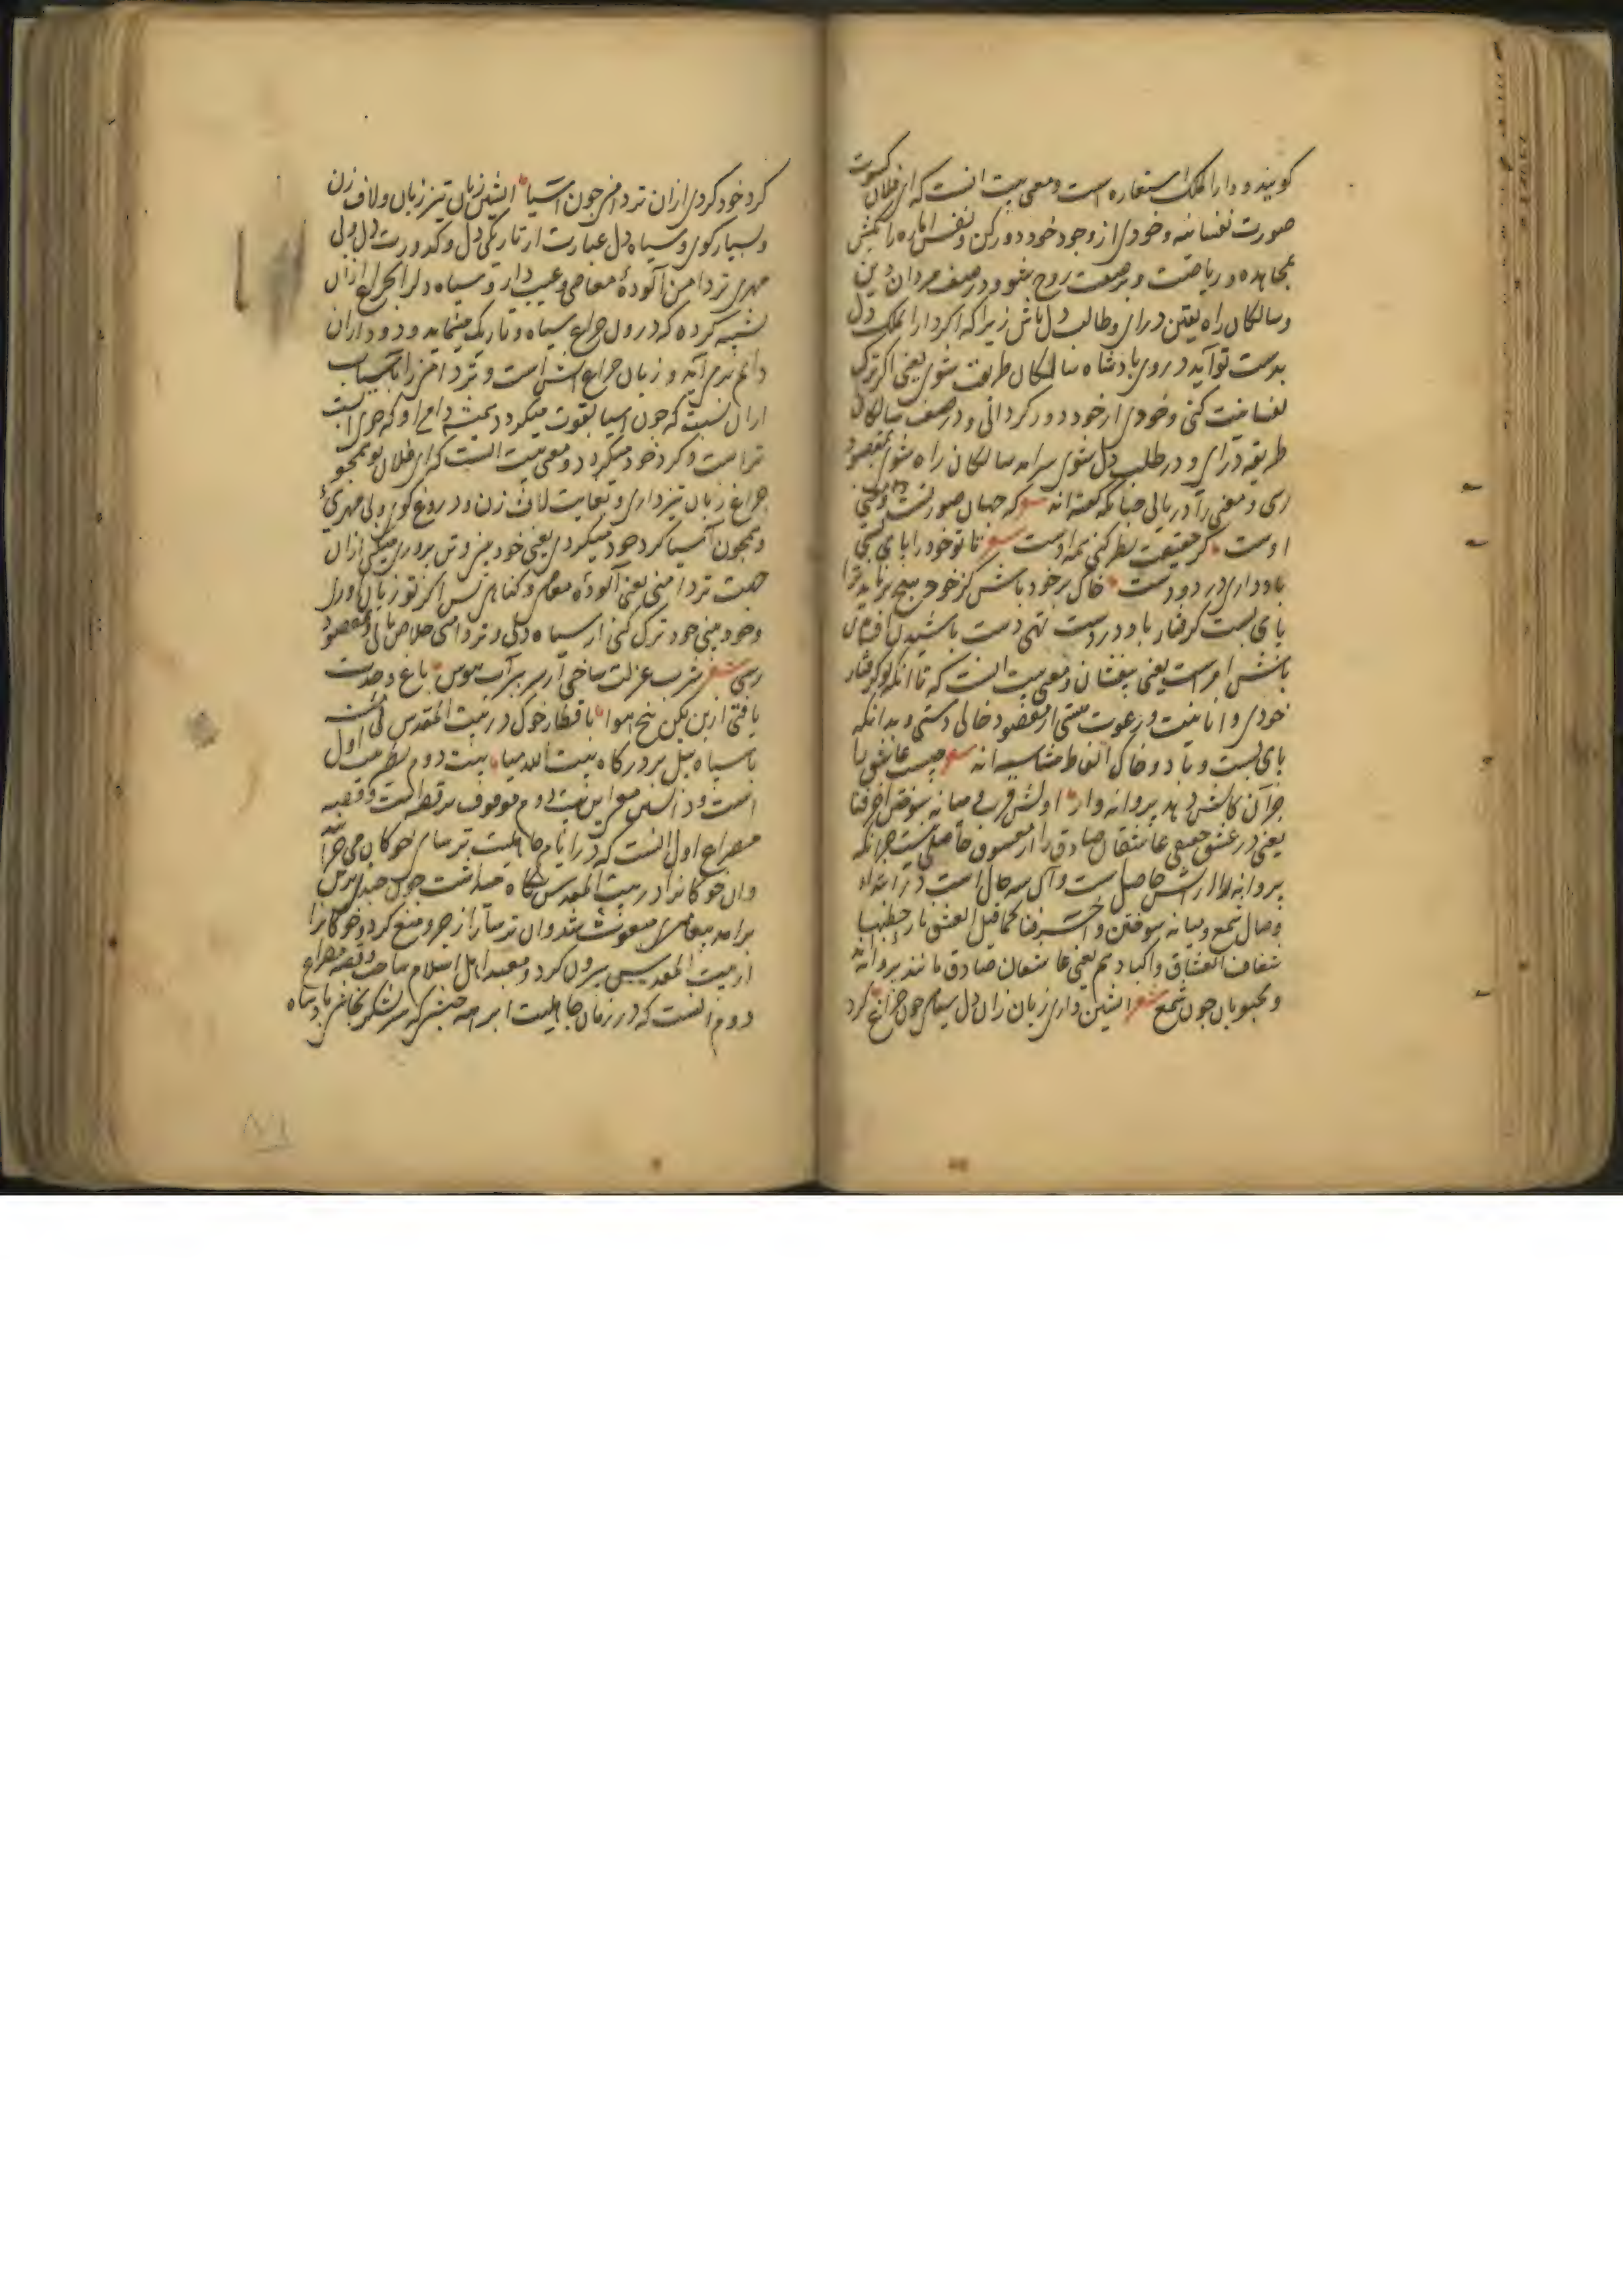 کویند و دارالملک استعاره است و معنی بیت آنست که ای فلان کسوت
صورت نفسانیه و خودی از وجود خود دور کن و نفس اماره را بکش
بمجاهده و ریاضت و بصفت روح شو و در صف مردان دین
و سالکان راه یقین درای و طالب دل باش زیرا که اکر دارالملک دل
بدست تو آید در وی پادشاه سالکان طریقت شوی یعنی اکر ترک
نفسانیت کنی و خودی از خود دور کردانی و در صف سالکان
طریقه درای و در طلب دل شوی سرامد سالکان راه شوی بمقصود
رسی و معنی را دریابی چنانکه کفته اند شعر که جهان صورتست و معنی
اوست کر حقیقت نظر کنی همه اوست شعر تا تو خود را پای بستی
باد داری در دو دست خاک بر خود باش کز خود هیچ برناید ترا
پای بست کرفتار باد در دست تهی دست پاشیدن افشان
باش امر است یعنی بیفشان و معنی بیت آنست که تا آنکه تو کرفتار
خودی و انانیت و رعونت هستی از مقصود خالی دستی و بدانکه
پای بست و باد و خاک الفاظ متناسبه اند شعر چیست عاشق را
جز آن کاتش دهد پروانه وار اولش قرب و میانه سوختن آخر فنا
یعنی در عشق حقیقی عاشقان صادق را از معشوق حاصلی نیست جز آنکه
پروانه را از آتش حاصل است و آن سه حال است در ابتداء
وصال شمع و میانه سوختن و آخر فنا کما قیل العشق نار حطبها
شغاف العشاق و اکبادهم یعنی عاشقان صادق مانند پروانه اند
و محبوبان چون شمع شعر آتشین داری زبان زان دل سیاهی چون چراغ کرد
کرد خود کردی از آن تردامنی چون آسیا آتشین زبان تیز زبان و لاف زن
و بسیار کوی و سیاه دل عبارت از تاریکی دل و کدورت دل و بی
مهری تردامن آلودهٔ معاصی و عیب دار و سیاه دل را بچراغ از آن
تشبیه کرده که درون چراغ سیاه و تاریک مینماید و دود از آن
دائم برمی آید و زبان چراغ آتش است و تردامن را بآسیاب
از آن نسبت که چون آسیا بقوت میکردد همیشه دامن او که چرخ است
تر است و کرد خود میکردد و معنی بیت آنست که ای فلان تو همچو
چراغ زبان تیز داری و بغایت لاف زن و دروغ کوی و بی مهری
و همچون آسیا کرد خود میکردی یعنی خودبینی و تن پروری میکنی از آن
جهت تردامنی یعنی آلوده معاصی و کناهی پس اکر تو زبان آوری
و خودبینی خود ترک کنی از سیاه دلی و تردامنی خلاص یابی و بمقصود
رسی شعر شرب عزلت ساختی از سر ببر آب هوس باغ وحدت
یافتی از بن بکن بیخ هوا با قطار خوک در بیت المقدس پا منه
با سپاه پیل بر درکاه بیت الله میا بیت دوم نظیر بیت اول
است و دانستن معنی این بیت دوم موقوف بر قصه است و قصه
مصراع اول آنست که در ایام جاهلیت ترسای خوکان می چرانید
و آن خوکانرا در بیت المقدس نکاه میداشت چون چند برین
برامد پیغامبری مبعوث شد و آن ترسا را زجر و منع کرد و خوکانرا
از بیت المقدس بیرون کرد و معبد اهل اسلام ساخت و قصه مصراع
دوم آنست که در زمان جاهلیت ابرهه حبشی که سر لشکر نجاشی پادشاه